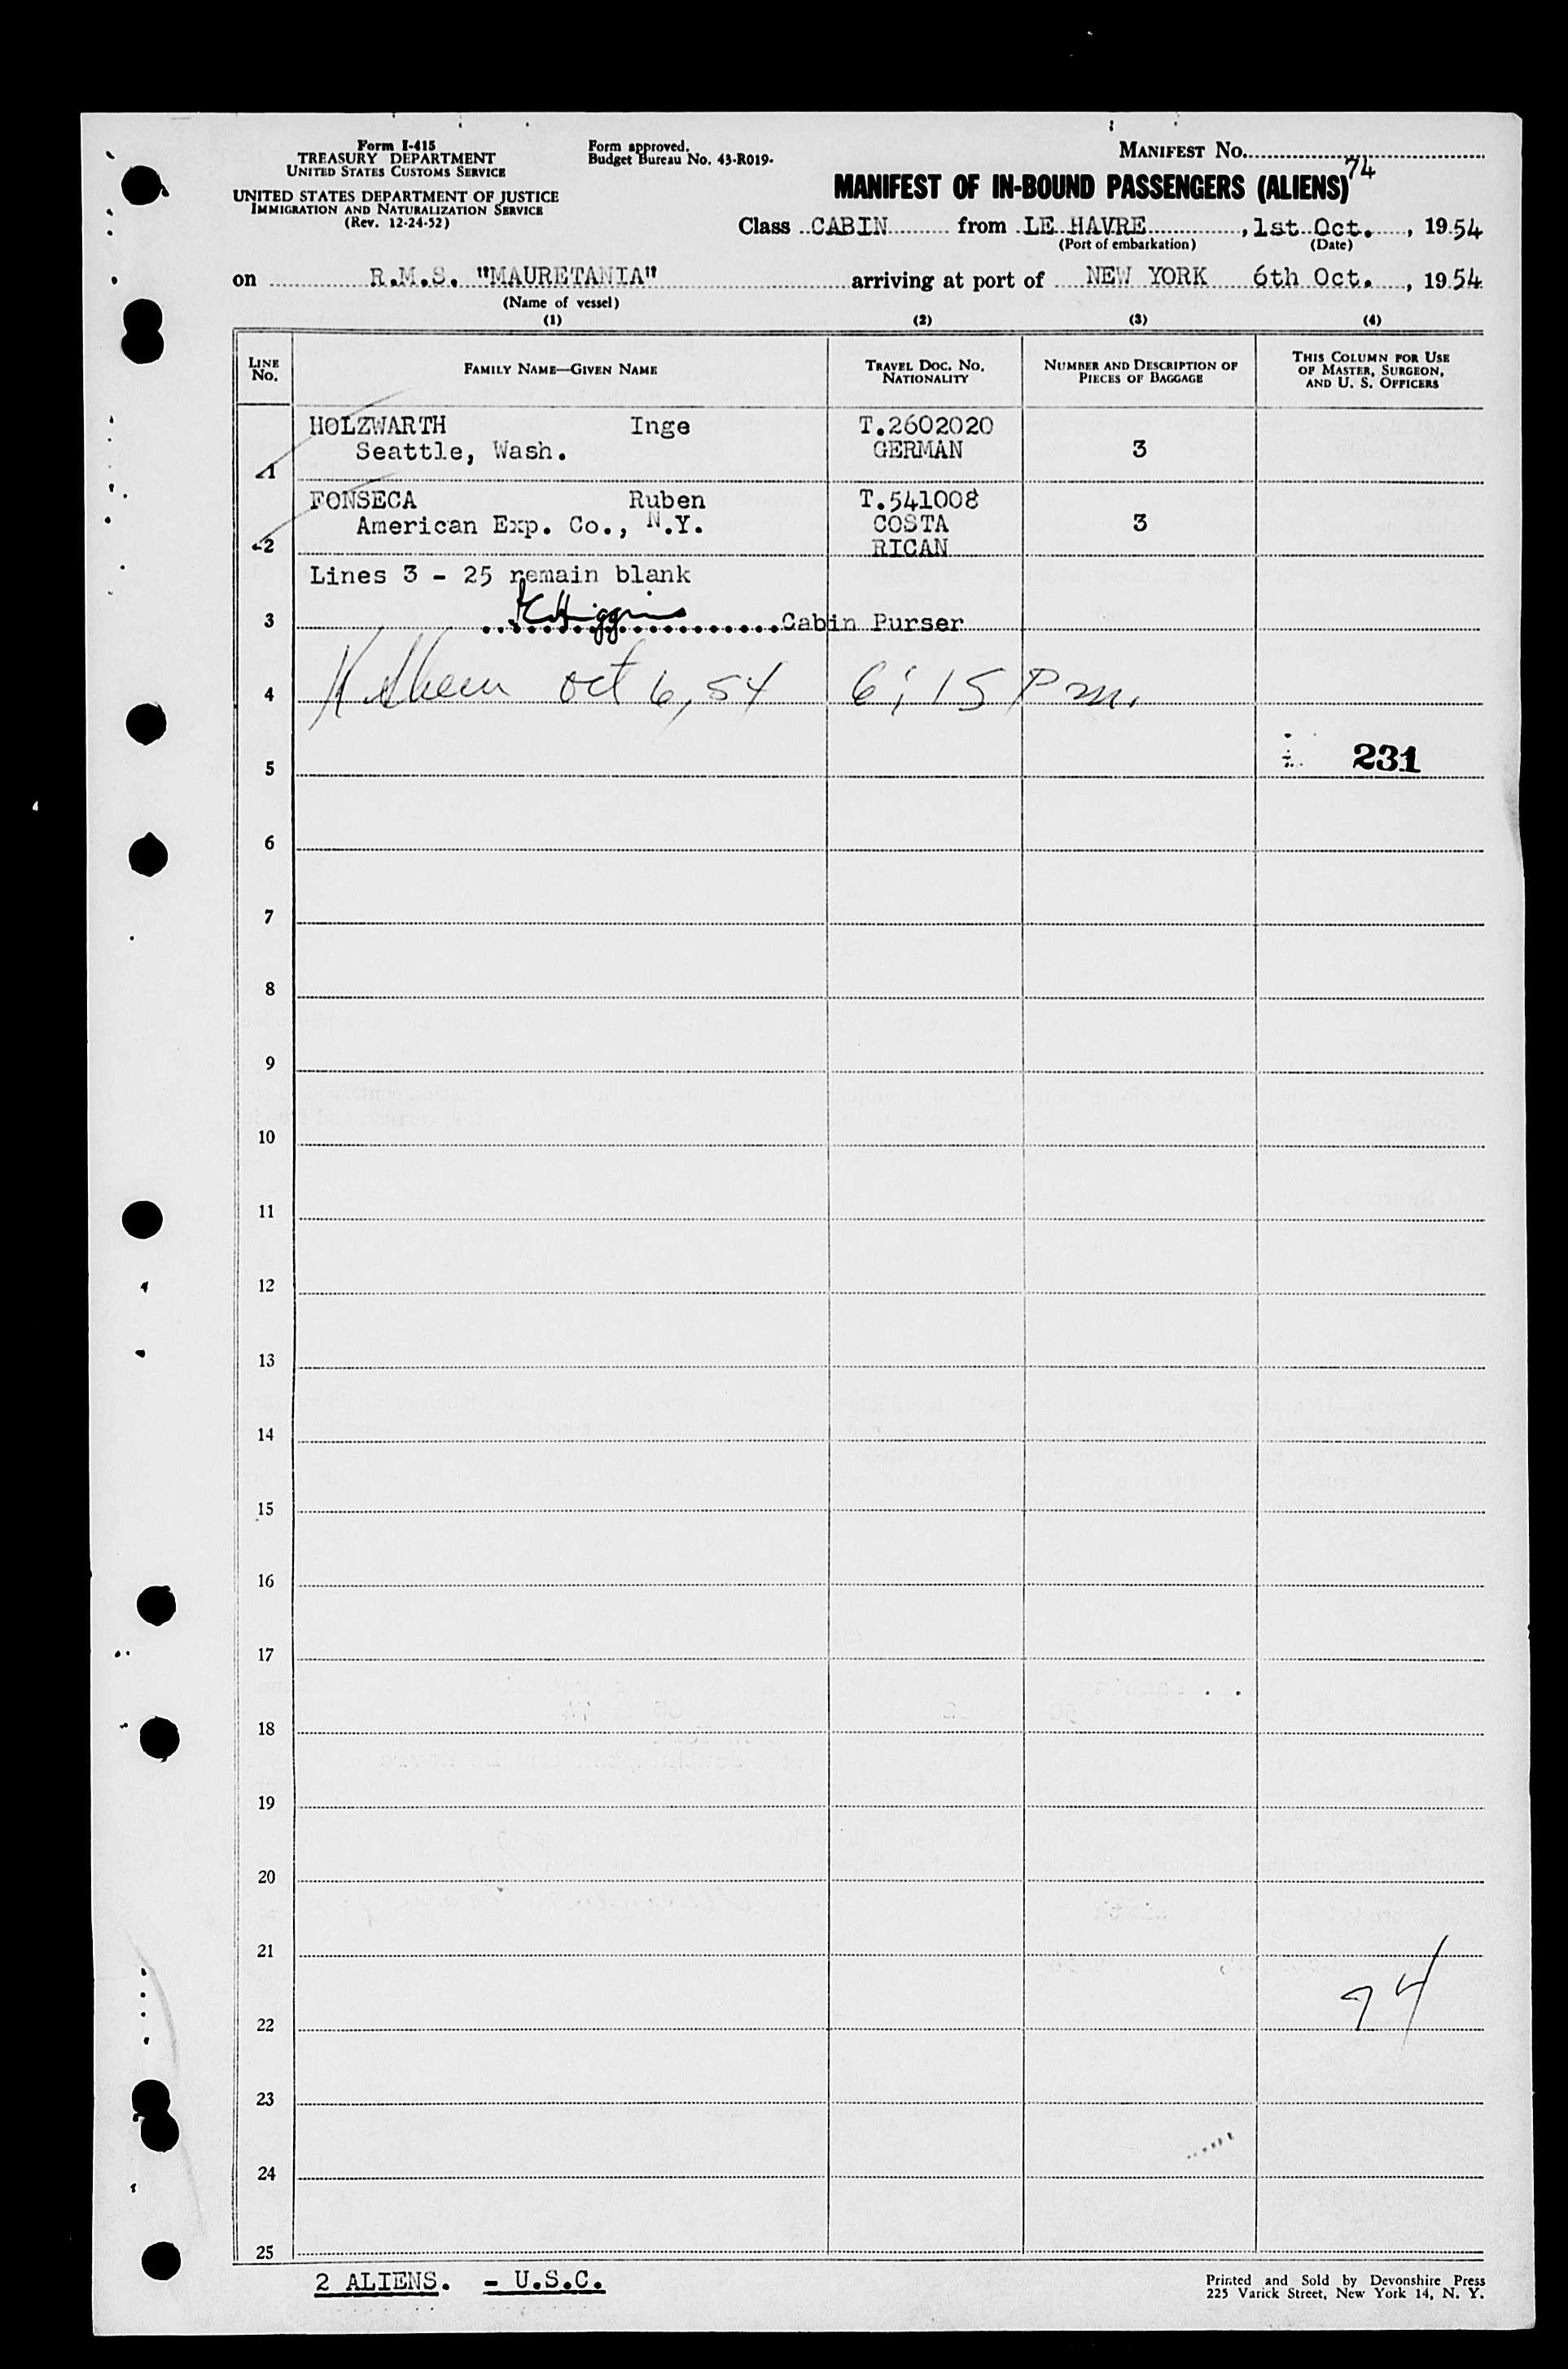 Form I-415
TREASURY DEPARTMENT
UNITED STATES CUSTOMS SERVICE
UNITED STATES DEPARTMENT OF JUSTICE
IMMIGRATION AND NATURALIZATION SERVICE
(Rev. 12-24-52)
Form approved.
Budget Bureau No. 43-R019-
MANIFEST No.
74
MANIFEST OF IN-BOUND PASSENGERS (ALIENS)
Class CABIN from LE HAVRE, 1st Oct., 1954
(Port of embarkation) (Date)
on R.M.S. "MAURETANIA" arriving at port of NEW YORK 6th Oct., 1954
(Name of vessel)
(1) (2) (3) (4)
LINE No. FAMILY NAME—GIVEN NAME TRAVEL DOC. No. NATIONALITY NUMBER AND DESCRIPTION OF PIECES OF BAGGAGE THIS COLUMN FOR USE OF MASTER, SURGEON, AND U. S. OFFICERS
HOLZWARTH Inge T.2602020
Seattle, Wash. GERMAN 3
1
FONSECA Ruben T.541008
American Exp. Co., N.Y. COSTA 3
2 RICAN
Lines 3 - 25 remain blank
3 Higgins Cabin Purser
4 Oct 6, 54 6:15 Pm.
5 231
6
7
8
9
10
11
12
13
14
15
16
17
18
19
20
21
22 94
23
24
25
2 ALIENS. - U.S.C.
Printed and Sold by Devonshire Press
225 Varick Street, New York 14, N. Y.